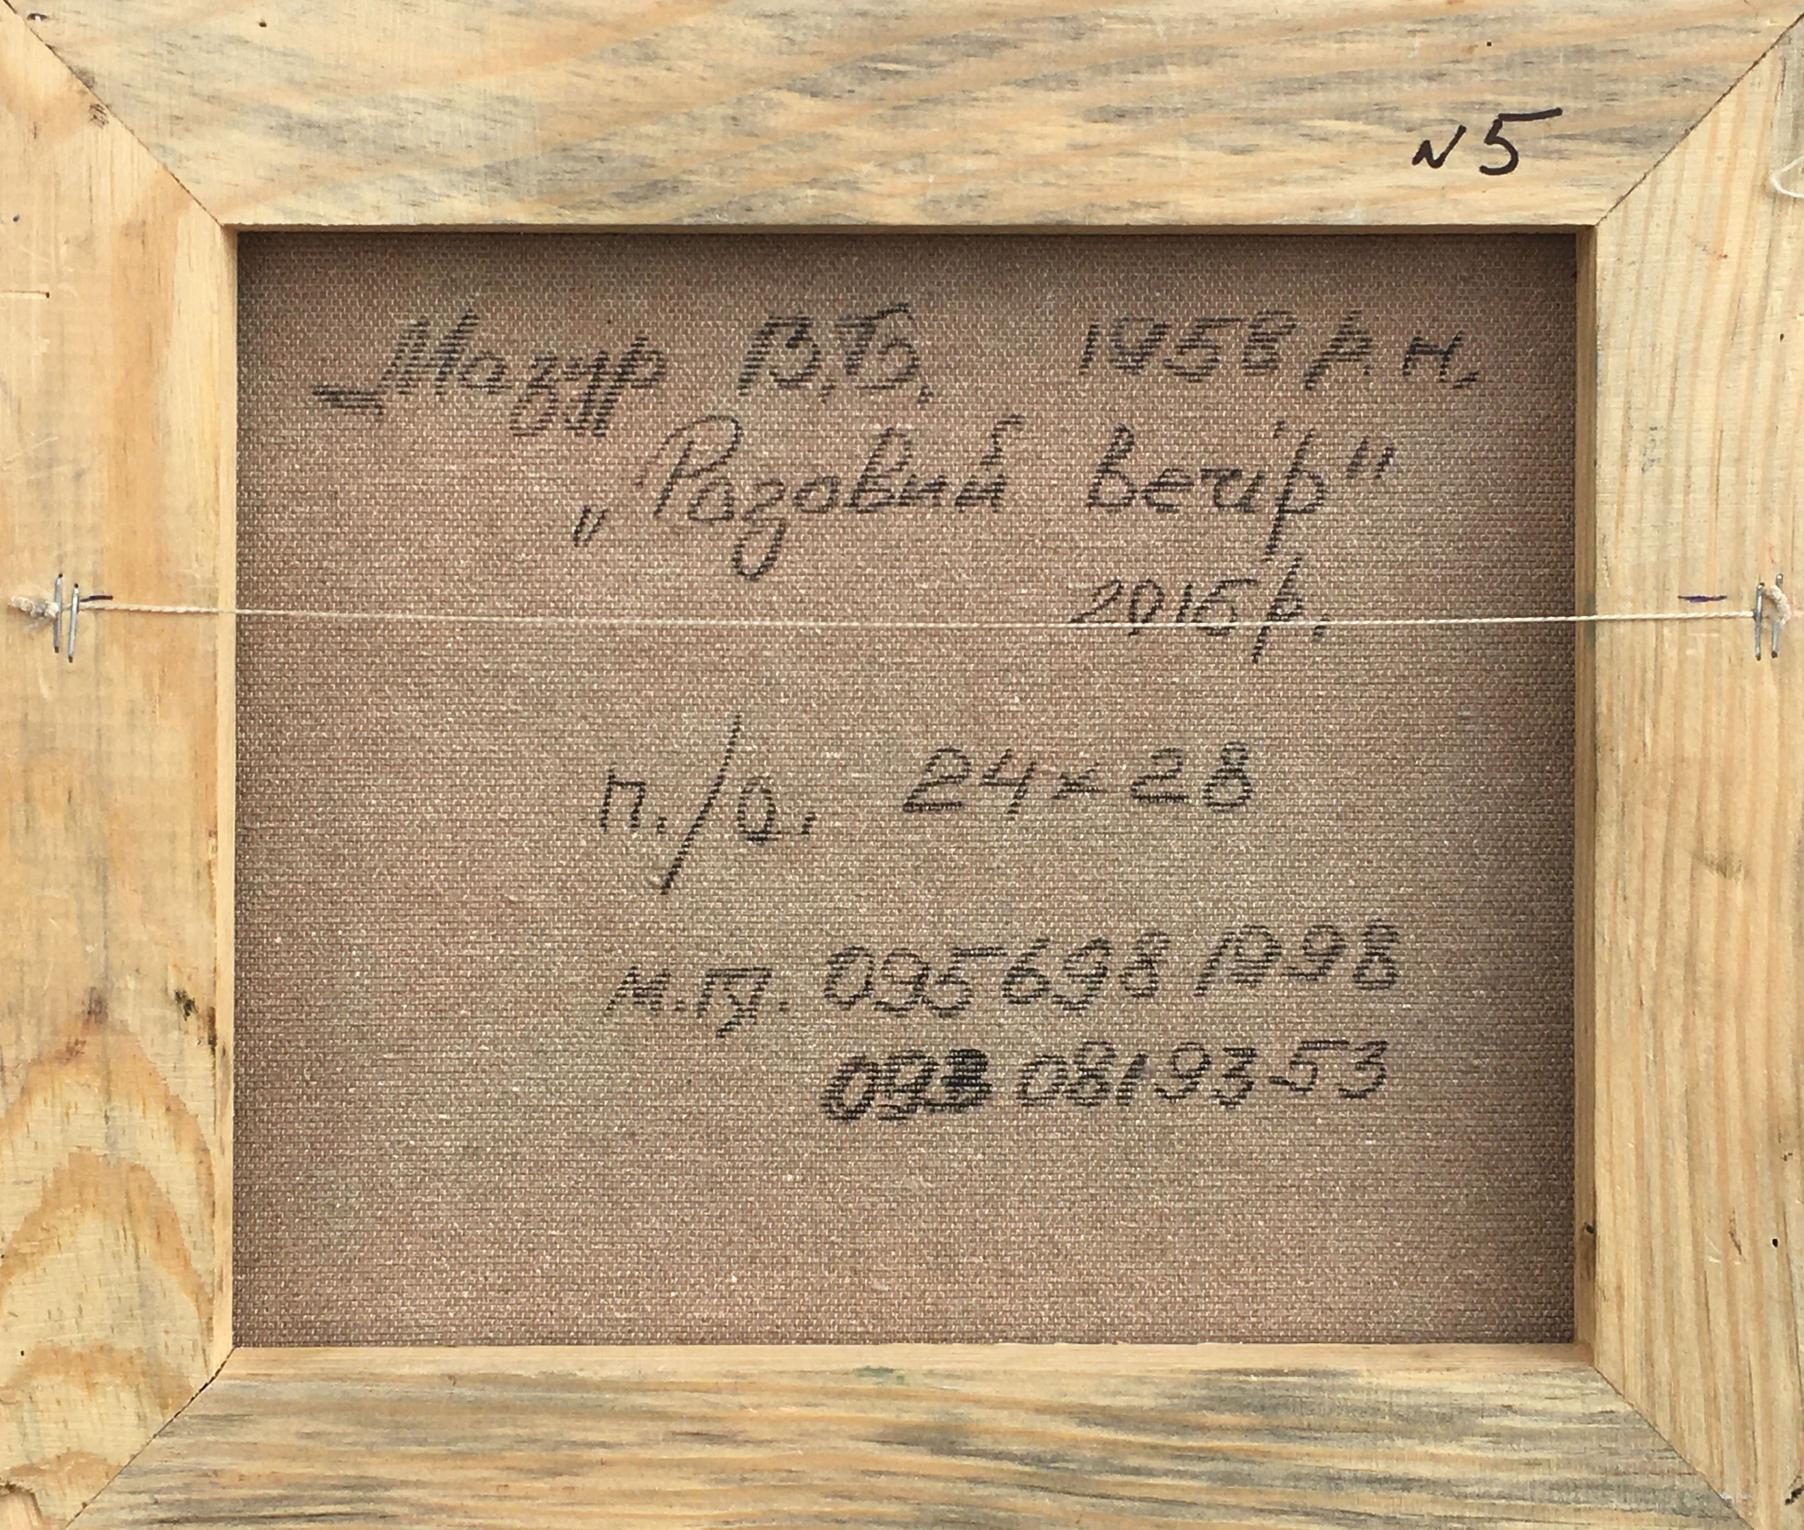 N5
Мазур В.Б. 1958 р.н.
„Розовий вечір"
2015р.
п./о. 24х28
м.т. 095 698 19 98
093 081 93 53